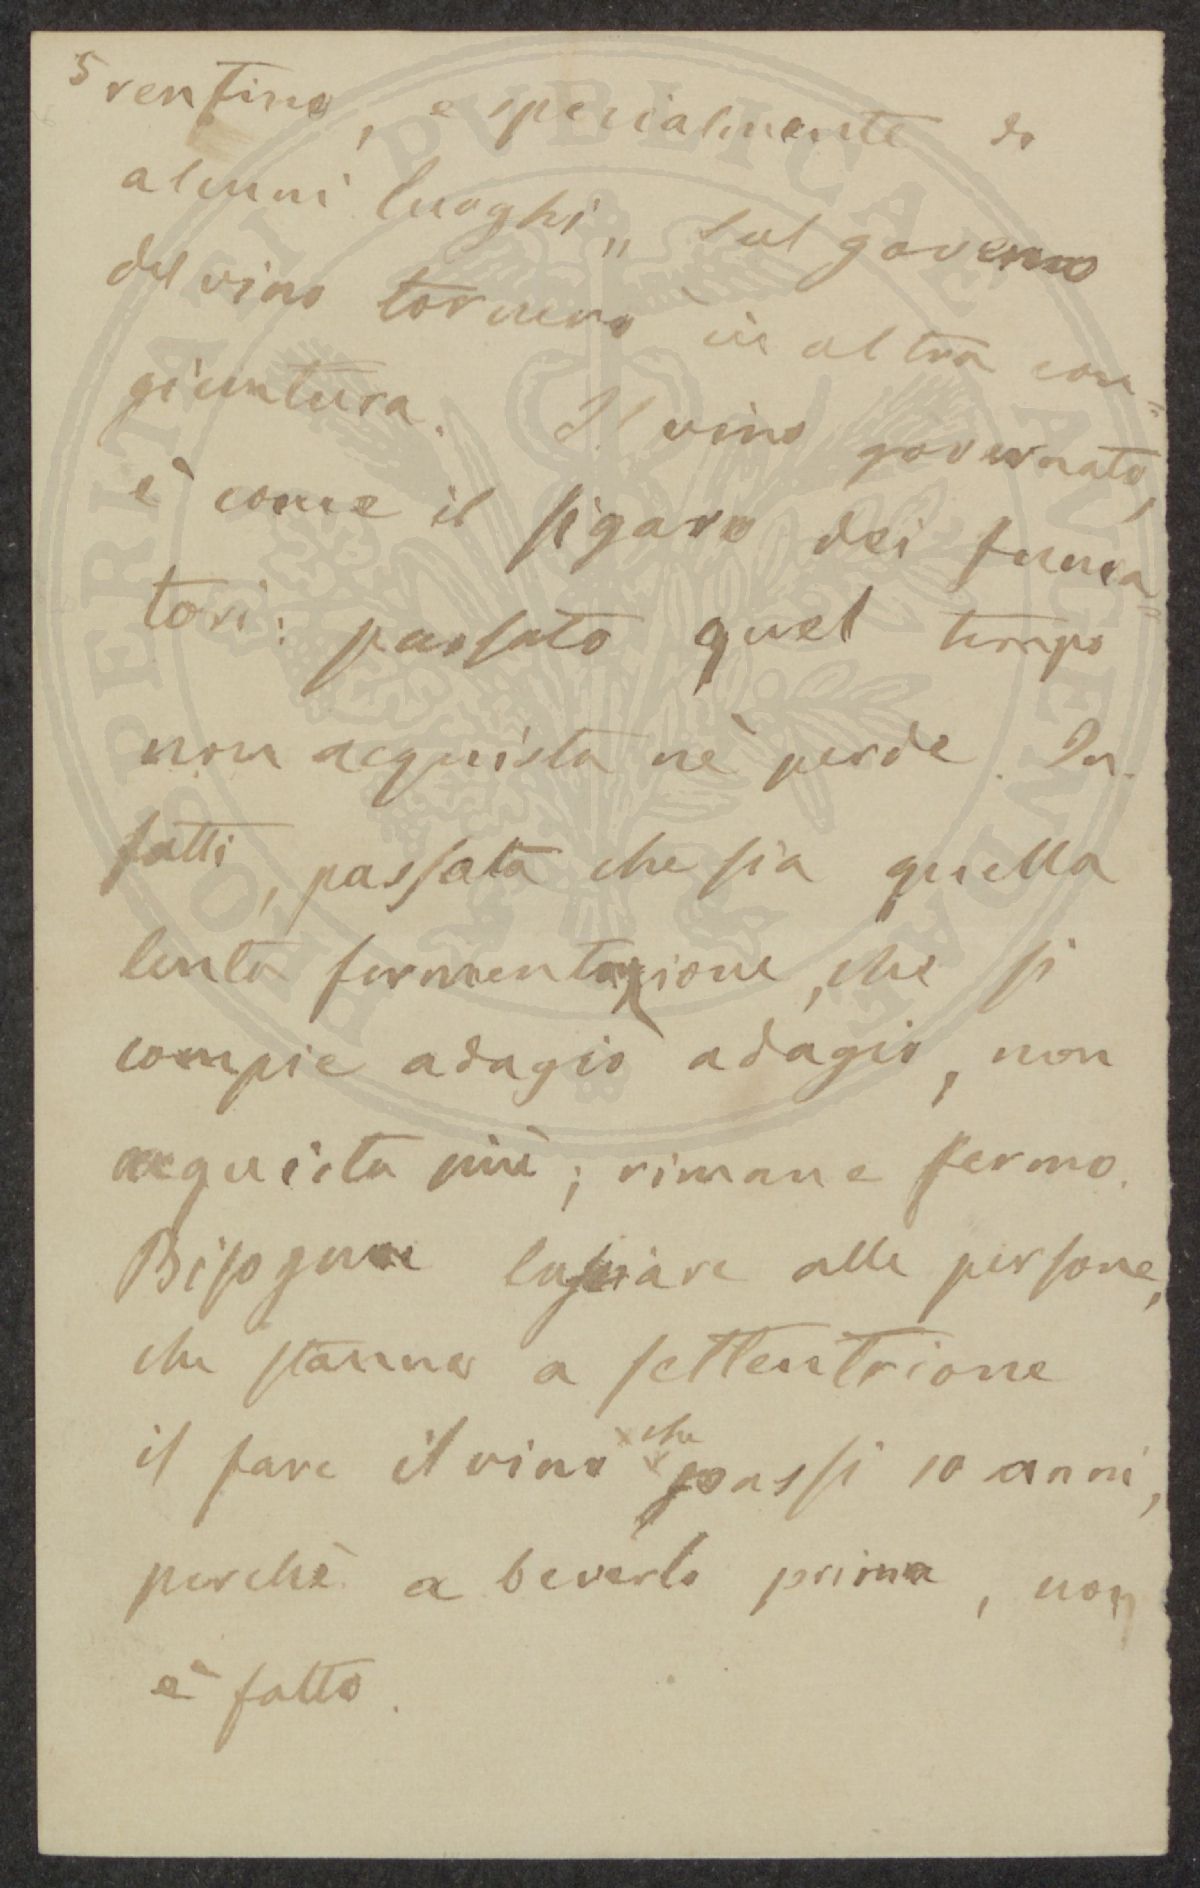 5
rentino, e specialmente da
alcuni luoghi„ Sul governo
del vino tornerò in altra con=
giuntura. Il vino governato,
è come il sigaro dei fuma=
tori: passato quel tempo
non acquista nè perde. In.
fatti, passata che sia quella
lenta fermentazione, che si
compie adagio adagio, non
acquista più; rimane fermo.
Bisogna lasciare alle persone,
che stanno a settentrione
il fare il vino che passi 10 anni,
perchè a beverlo prima, non
è fatto.
PROSPERITATI PVBLICAE AVGENDAE